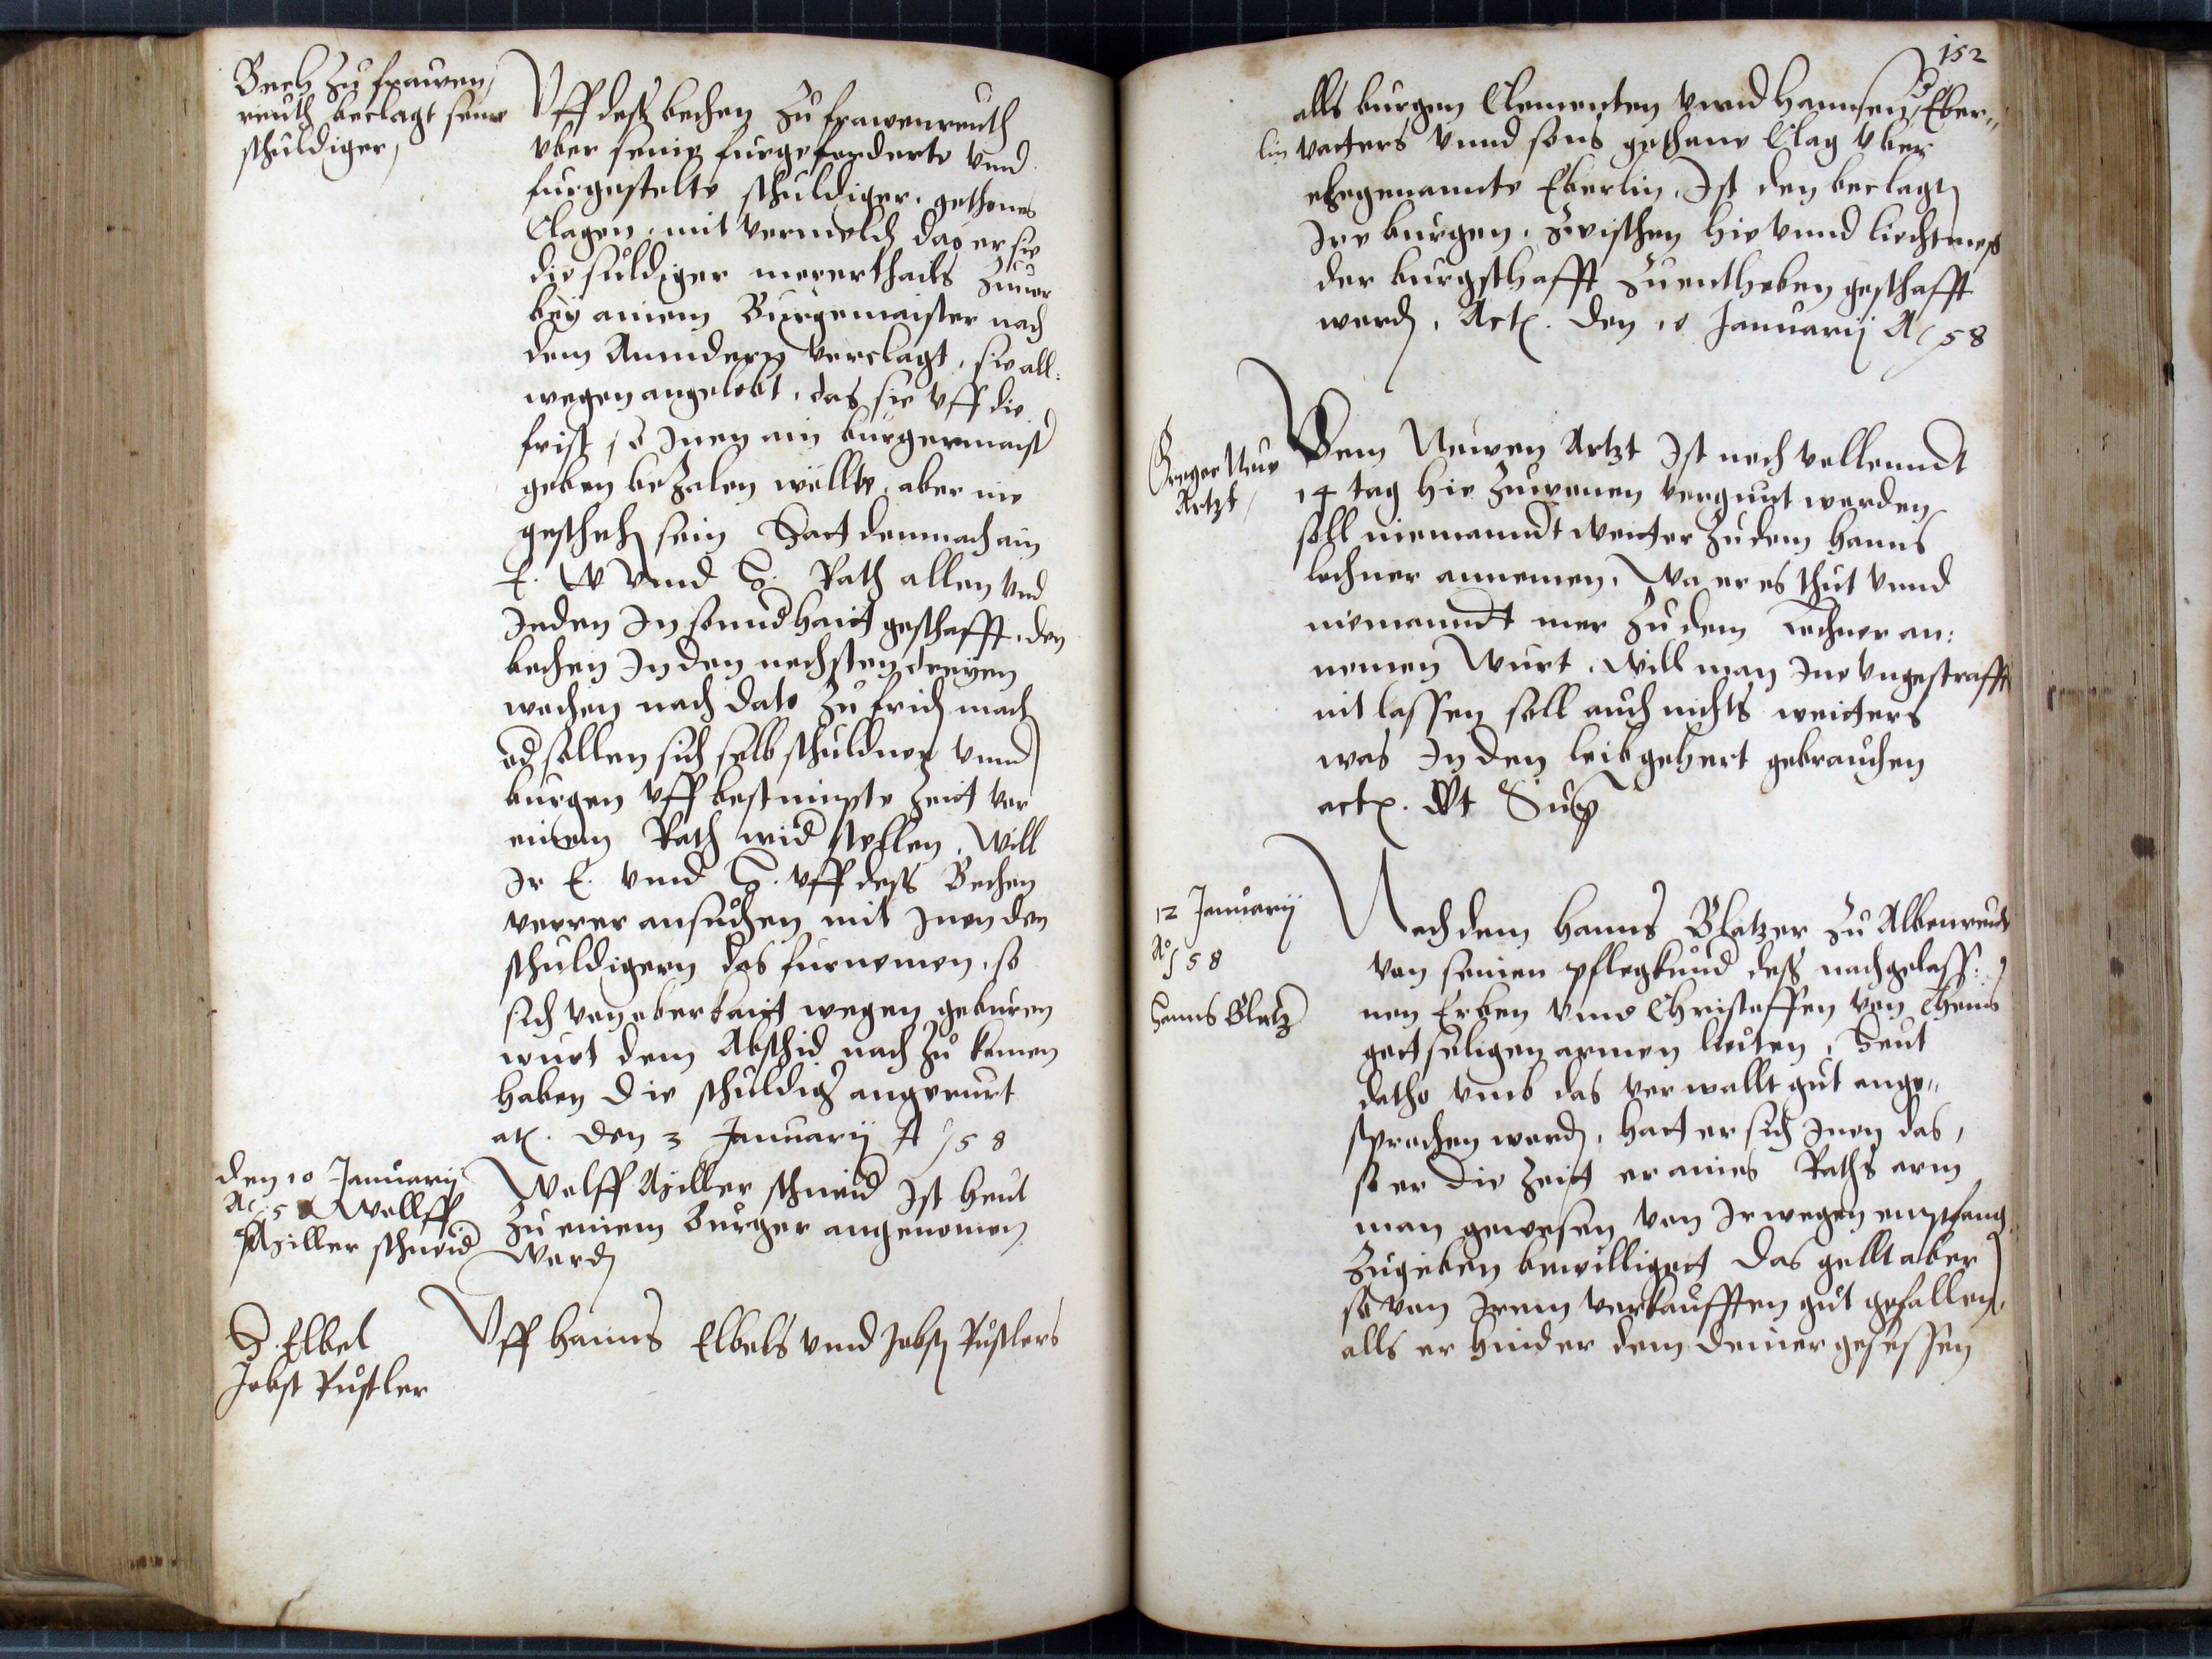 Beckh zu frawen,
reuth beclagt seine
schuldiger,
Uff deß becken zu frawenreuth
vber seine furgeforderte vnd
furgestelte schuldiger, gethones
Clagen, mit vermeldt das er sie
die suldiger merertheils zuuor
bey ainem Burgemaister nach
dem Anndern verclagt, sie all:
wegen angelobt, das sie vff die
frist so Inen ein burgermaist
geben bezalen wöllte, aber nie
gescheh sein Hat demnach ain
E. W vnnd H. Rath allen vnd
Jeden In sonndhait geschafft, den
becken In den nechsten dreyen
wochen nach dato zu frid mach
od sollen sich selbschuldner vnnd
burgen vff bestimpte Zeit vor
einem Rath wid stellen, will
Ir E. vnnd H. vff deß Becken
verrer ansuchen mit Inen den
schuldigern das furnemen, so
sich von oberkait wegen geburen
wurt dem Abschid nach zu komen
haben die schuldig angerurt
act. den 3 Januarij A 58
den 10 Januarij
A 58 Wolff
Miller schneid
Wolff Miller schneid Ist heut
zu einem Burger angenomen
werd
H. Elbel
Jobst Rustler
Uff hanns Elbels vnnd Jobst Rustlers
152
alls burgen Clementen vnnd Hannsen Eber„
lin vatters vnnd sons gethane Clag vber
ehegenannte Eberlin, Ist den beclagt
Ire burgen, zwischen hie vnnd liechtmeß
der burgschafft zuentheben geschafft
werd, Act. den 10 Januarij A 58
Neue
Artzt
Dem Neuwen Artzt Ist noch vollenndt
14 tag hie zuwonen vergunt werden
soll niemanndt weitter zu dem hanns
lochner annemen, Wa er es thut vnnd
niemanndt mer zu dem Lochner an:
nemen wurt, will man Ine vngestrafft
nit lassen soll auch nichts weitters
was In den leib gehert gebrauchen
act. Vt Sup
12 Januarij
Ao 58
Hanns Blatz
Nachdem hanns Blatzer zu Albenreuth
von seinen pflegkind deß nachgelass:
nen Erben vnnd Christoffen von Thein
gert seligen armen leuten, Heut
datho vmb das verwallt gut ange„
sprochen word, hat er sich Inen das,
so er die Zeit er aines Raths arm
man gewesen von Ir wegen empfang
zugeben bewilligett das gellt aber
so von Irem verkaufften gut gefallen,
alls er hinder dem deiner gesessen